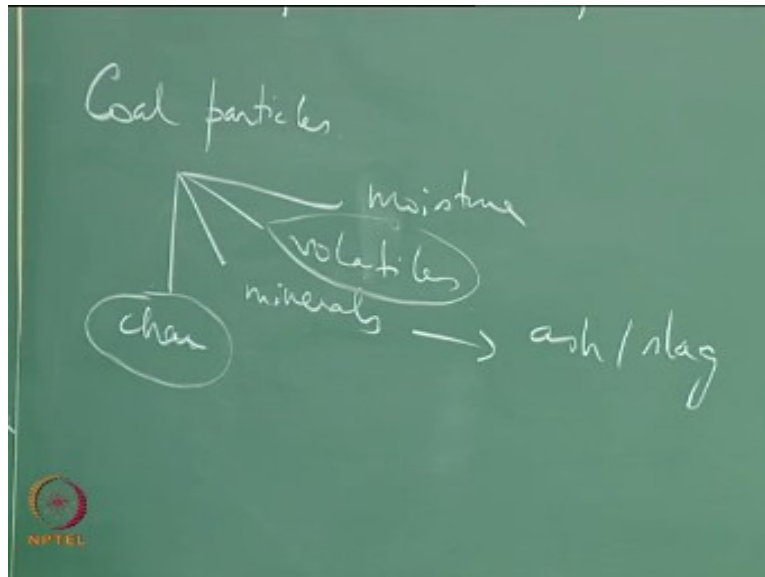 Coal particles
moisture
volatiles
minerals → ash / slag
char
NPTEL